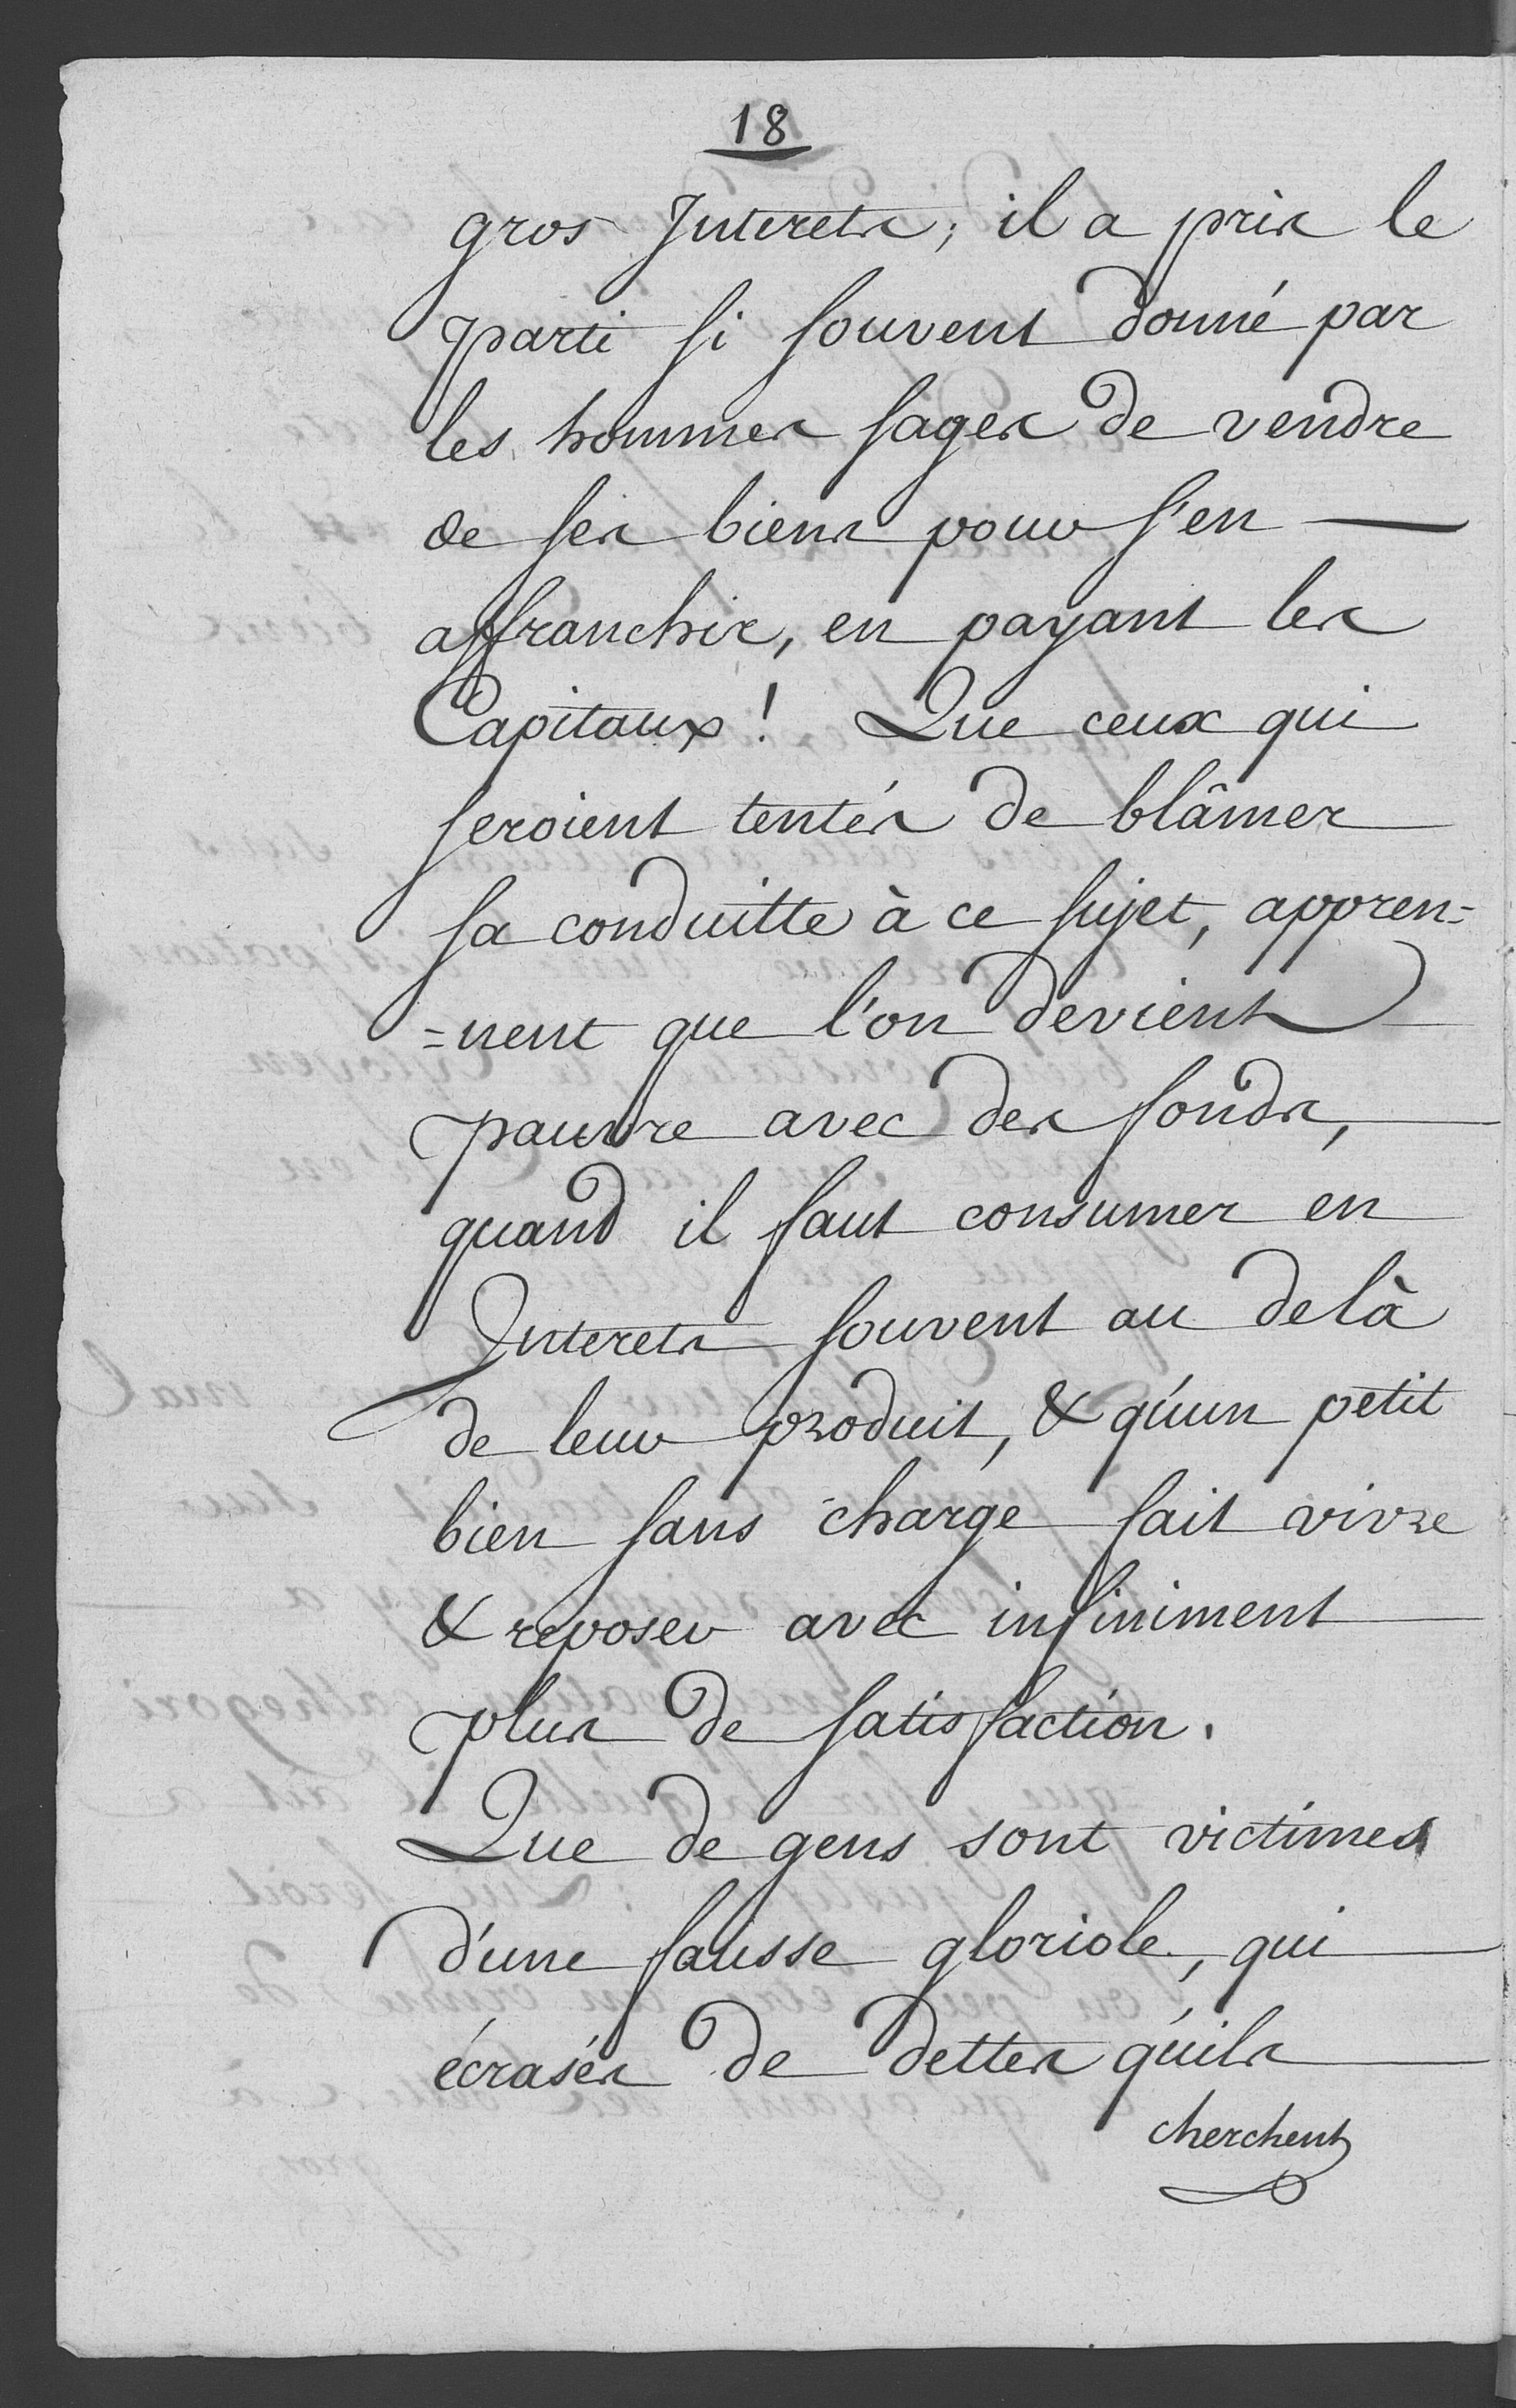 18
gros Interets; il a pris le
parti si souvent donné par
les hommes sages de vendre
de ses biens pour s'en
affranchir, en payant les
Capitaux! Que ceux qui
seroient tentés de blâmer
sa conduitte à ce sujet, appren=
=nent que l'on devient
pauvre avec des fonds,
quand il faut consumer en
Interets souvent au delà
de leur produit, & qu'un petit
bien sans charge fait vivre
& reposer avec infiniment
plus de satisfaction.
Que de gens sont victimes
d'une fausse gloriole, qui
écrasés de dettes qu'ils
cherchent